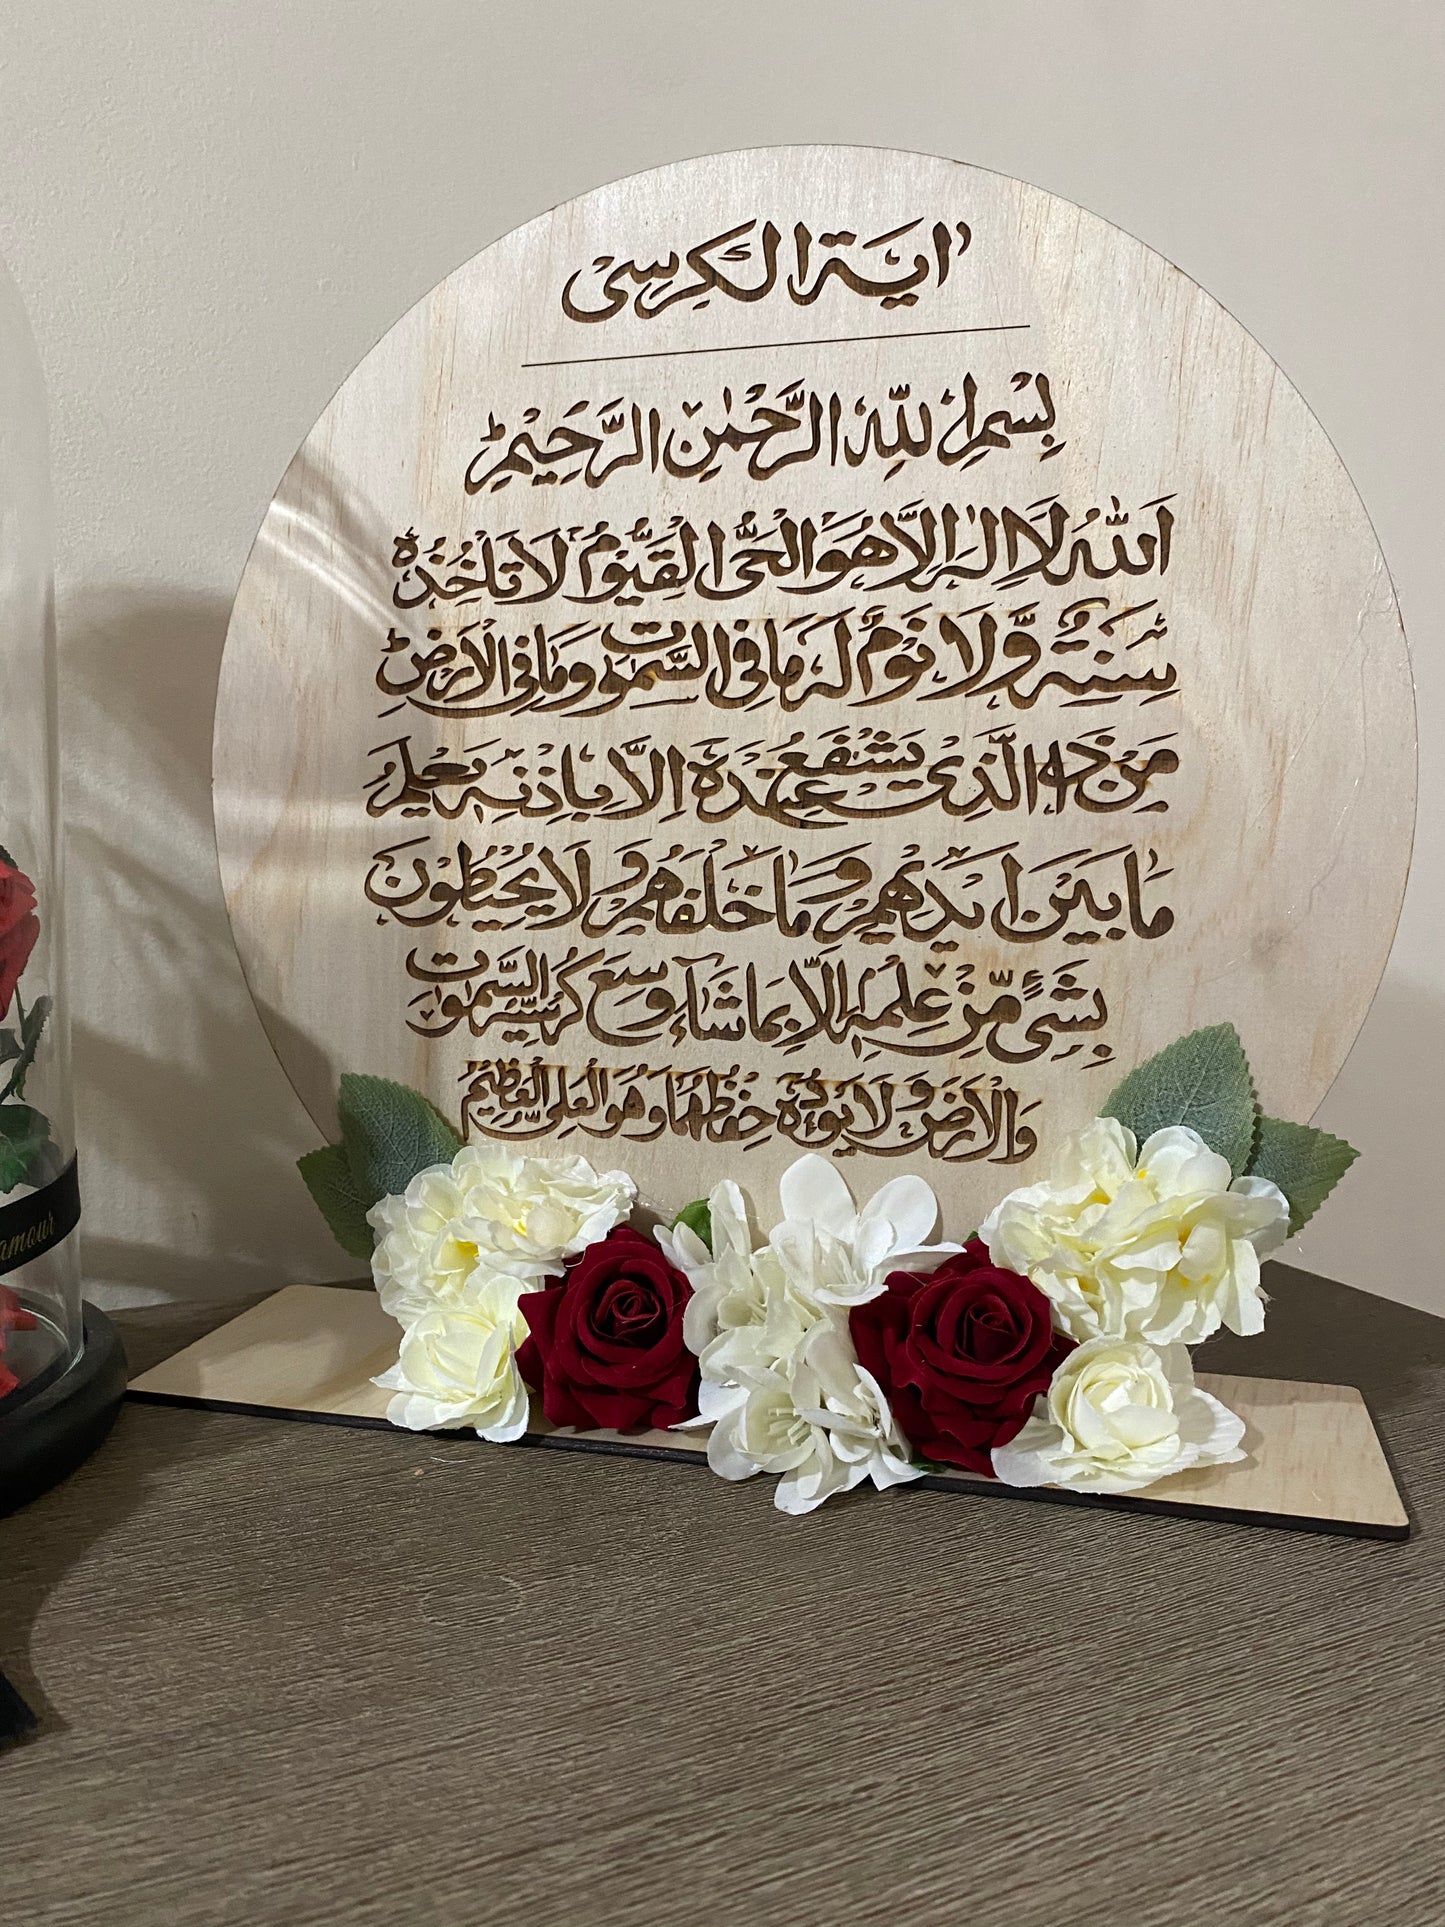 اٰية الكرسي
بِسْمِ اللهِ الرَّحْمٰنِ الرَّحِيْمِ
اَللّٰهُ لَا اِلٰهَ اِلَّا هُوَ الْحَىُّ الْقَيُّوْمُ لَا تَاْخُذُهٗ
سِنَةٌ وَّلَا نَوْمٌ لَهٗ مَا فِى السَّمٰوٰتِ وَمَا فِى الْاَرْضِ
مَنْ ذَا الَّذِىْ يَشْفَعُ عِنْدَهٗ اِلَّا بِاِذْنِهٖ يَعْلَمُ
مَا بَيْنَ اَيْدِيْهِمْ وَمَا خَلْفَهُمْ وَلَا يُحِيْطُوْنَ
بِشَىْءٍ مِّنْ عِلْمِهٖ اِلَّا بِمَا شَآءَ وَسِعَ كُرْسِيُّهُ السَّمٰوٰتِ
وَالْاَرْضَ وَلَا يَئُوْدُهٗ حِفْظُهُمَا وَهُوَ الْعَلِىُّ الْعَظِيْمُ
amour